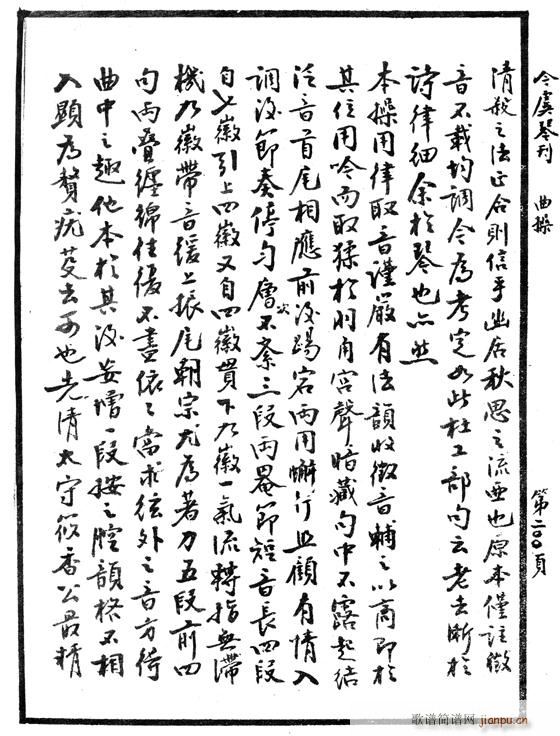 今虞琴刊　曲操　第二〇〇頁
清殺之法正合則信乎幽居秋思之流亞也原本僅註徵
音不載均調今為考定如此杜工部句云老去漸於
詩律細余於琴也亦然
本操用律取音謹嚴有法韻收徵音輔之以商即於
其位用吟而取猱於羽角宮聲暗藏句中不露起結
泛音首尾相應前後踢宕兩用蠏行照顧有情入
調後節奏停勻層次不紊三段兩罨節短音長四段
自七徽引上四徽又自四徽貫下九徽一氣流轉指無滯
機九徽帶音緩上振尾朝宗尤為著力五段前四
句兩疊纏綿往復不盡依依當求弦外之音方得
曲中之趣他本於其後妄增一段按之腔韻格不相
入顯為贅疣芟去可也先清太守筱香公最精
歌谱简谱网 jianpu.cn